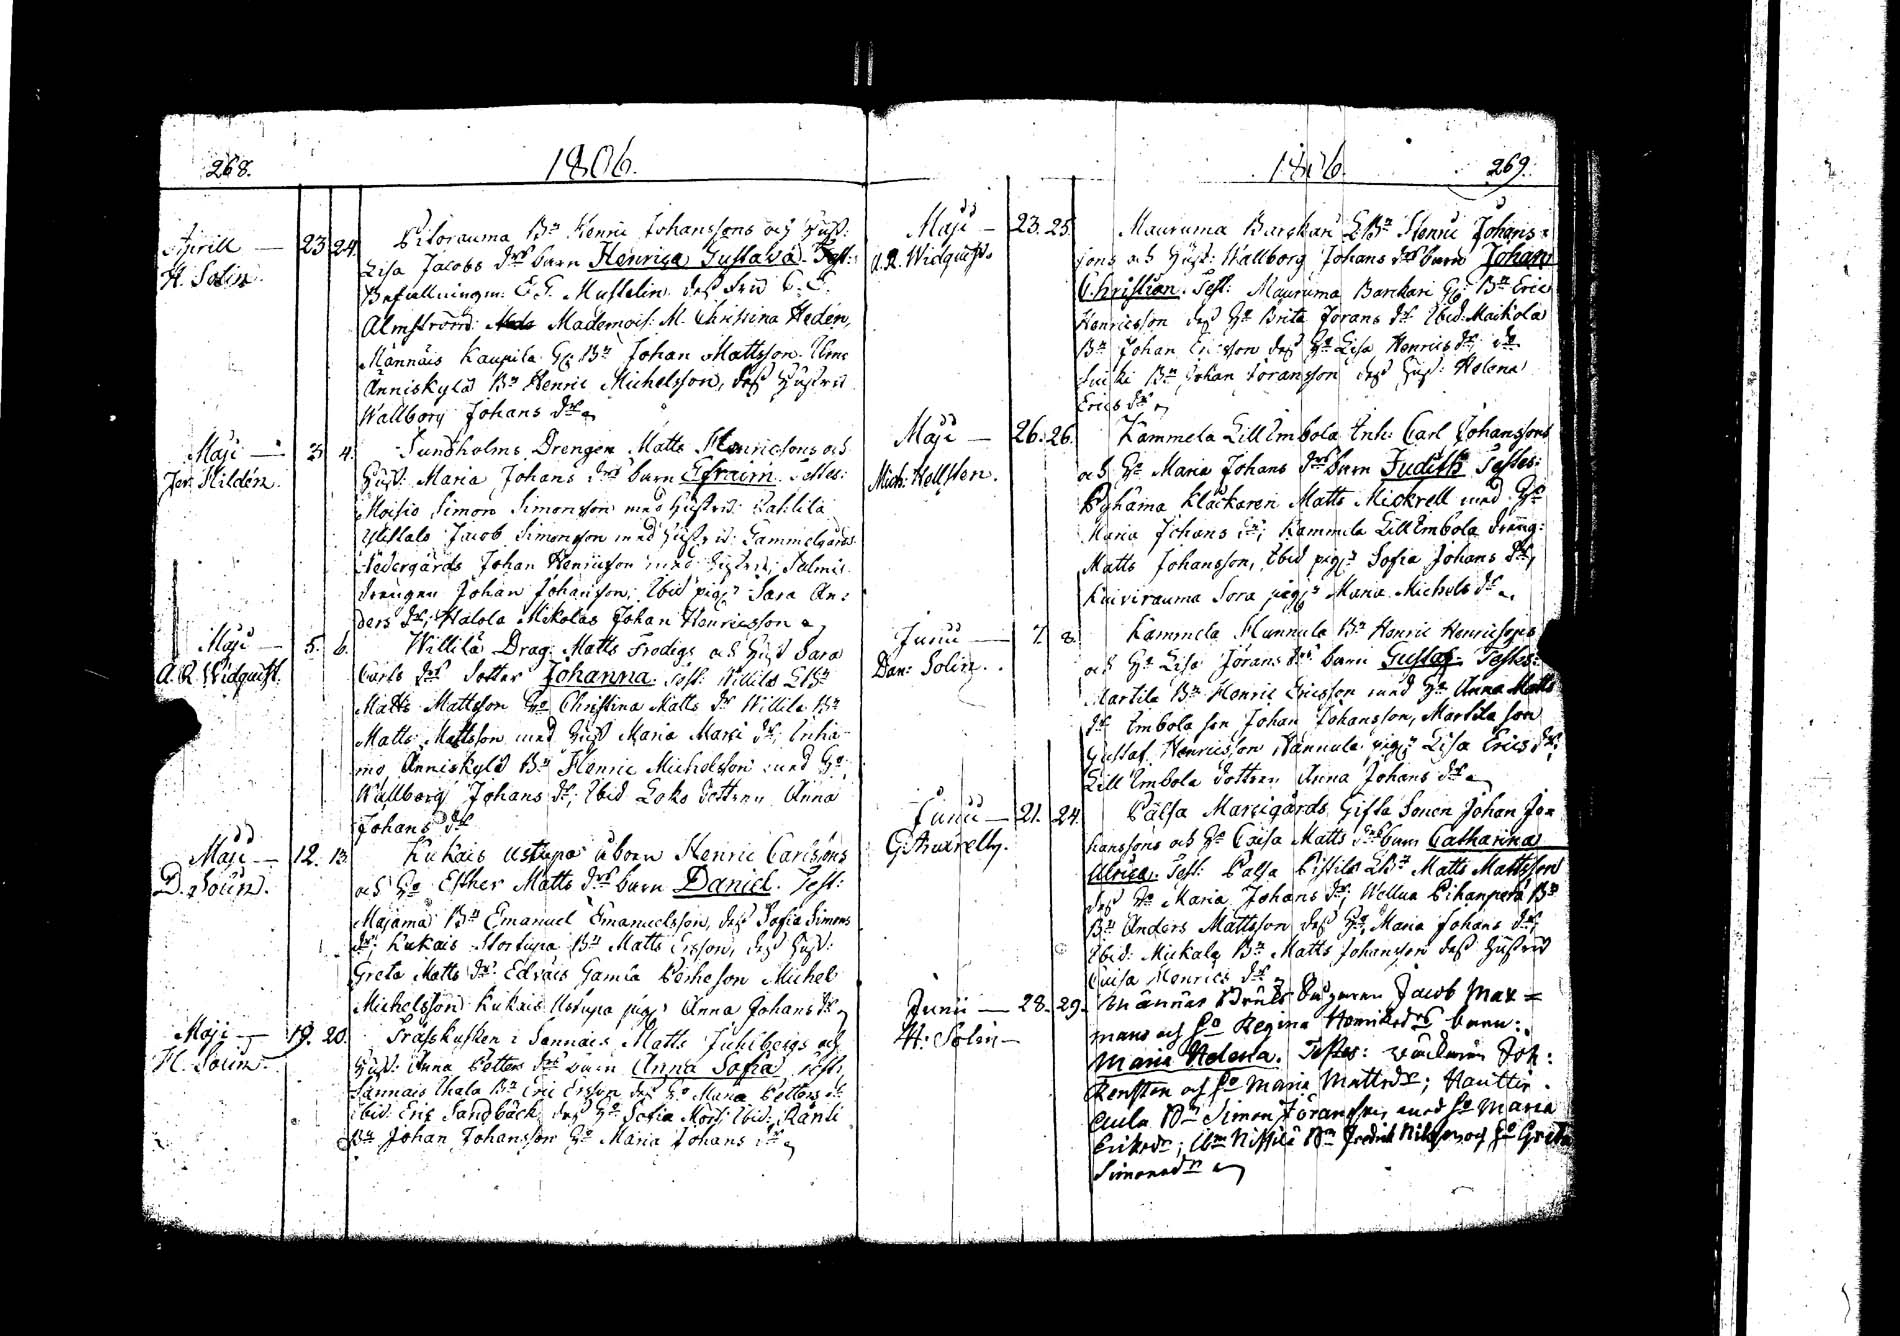 268.
1806.
Aprill — 23 24. Pitorauma Bn Henric Johanssons och Hust:
H. Solin. Lisa Jacobs drs barn Henrica Gustava. Test:
Befallningsm: E. G. Mustelin dess Fru C. C.
Almströöm: Mademois: M. Christina Hedén,
Männäis Kaupila Gl: Bn Johan Mattsson.
Änniskylä Bn Henric Michelsson, dess Hustru
Wallborg Johans dr
Maji — 3 4. Sundholms Drengen Matts Henricsons och
Jer. Hildén. Hust: Maria Johans drs barn Efraim. Testes:
Moisio Simon Simonsson med Hustru: Kahlila
Ylistalo Jacob Simonsson med Hustru: Gammelgårds
Nedergårds Johan Henricsson med Hustru; Salmis
drengen Johan Johansson, Ibid pig: Sara An:
ders dr; Halola Mikolas Johan Henricsson
Maji — 5. 6. Willilä Dräg: Matts Frodigs och Hust Sara
A. R. Widquist. Carls drs dotter Johanna. Test: Willilä LBn
Matts Mattsson Ho Christina Matts dr Willilä Bn
Matts Mattsson med Hust Maria Marci dr; Inha
mo Änniskylä Bn Henric Michelsson med Ho
Wallborg Johans dr; Ibid Loks dottren Anna
Johans dr
Maji — 12. 13. Kukais Ustupa åboen Henric Carlssons
D. Solin. och Ho Esther Matts drs barn Daniel. Test:
Majama Bn Emanuel Emanuelsson, dess Sofia Simons
dr. Kukais Stortupa Bn Matts Ersson, dess Hust:
Greta Matts dr. Edväis Gamla Perheson Michel
Michelsson Kukais Ustupa pig: Anna Johans dr
Maji — 19. 20. Fräskusken i Sannais Matts Juhlbergs och
H. Solin. Hust: Anna Petters drs barn Anna Sofia Test:
Sannais Uhala Bn Eric Ersson dess Ho Maria Petters dr
Ibid: Eric Sandbäck dess Ho Sofia Ibid: Ränti
Bn Johan Johansson Ho Maria Johans dr
1806. 269.
Maji — 23. 25. Mauruma Barskari LBn Henric Johans:
A. R. Widquist. sons och Hust: Wallborg Johans drs barn Johan
Christian. Test: Mauruma Barskari Gl: Bn Eric
Henricsson dess Ho Brita Jörans dr Ibid: Maikola
Bn Johan Ericsson dess Ho Lisa Henrics dr,
Bn Johan Jöransson dess Hust: Helena
Erics dr
Maji — 26. 26. Kammela Lill Embola Inh: Carl Johanssons
Mich: Hellsten. och Ho Maria Johans drs barn Judith Testes:
Pyhäma Klåckaren Matts Mickrell med Ho
Maria Johans dr; Kammela Lill Embola dräng:
Matts Johansson, Ibid pig: Sofia Johans dr,
Kuivirauma Sora pig: Maria Michels dr
Junii — 7. 8. Kammela Hannula Bn Henric Henricsons
Dan: Solin. och Ho Lisa Jörans drs barn Gustaf. Testes:
Martila Bn Henric Ericsson med Ho Anna Matts
dr Embola son Johan Johansson, Martila son
Gustaf Henricsson Hannula pig: Lisa Erics dr;
Lill Embola dottren Anna Johans dr
Junii — 21. 24. Pälsa Marcigårds Gifta Sonen Johan Jo=
G. Aurell. hanssons och Ho Caisa Matts drs barn Catharina
Ulrica. Test: Palsa Pistila LBn Matts Mattsson
dess Ho Maria Johans dr; Wellua Pihanperä Bn
Bn Anders Mattsson dess Ho Maria Johans dr;
Ibid: Mickala Bn Matts Johansson dess Hustru
Caisa Henrics dr
Junii — 28. 29. Männäs Jacob Max=
H: Solin — mans och Ho Regina Henriksdrs barn:
Maria Helena. Testes: Joh:
Rensten och Ho Maria Mattsdr; Hauttin
Aula Bn Simon Göransson, med Ho Maria
Eriksdr; Nissilä Bn Fredrik Nilsson och Ho Greta
Simonsdr